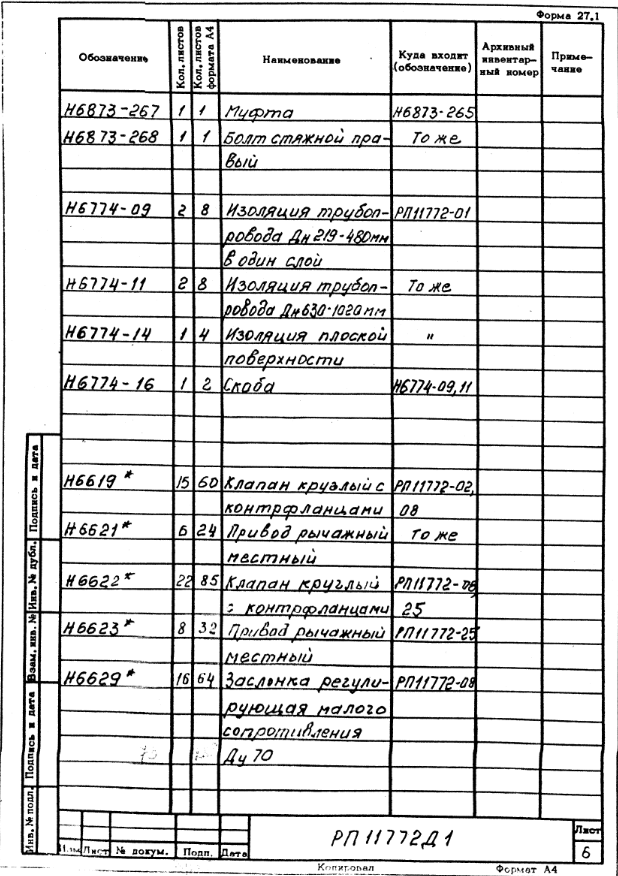 Форма 27.1
Обозначение Кол. листов Кол. листов формата А4 Наименование Куда входит (обозначение) Архивный инвентар-ный номер Приме-чание
Н6873-267 1 1 Муфта Н6873-265
Н6873-268 1 1 Болт стяжной пра- То же
вый
Н6774-09 2 8 Изоляция трубоп- РП11772-01
ровода Дн 219-480мм
в один слой
Н6774-11 2 8 Изоляция трубоп- То же
ровода Дн 630-1020мм
Н6774-14 1 4 Изоляция плоской "
поверхности
Н6774-16 1 2 Скоба Н6774-09,11
Н6619* 15 60 Клапан круглый с РП11772-02,
контрфланцами 08
Н6621* 6 24 Привод рычажный То же
местный
Н6622* 22 85 Клапан круглый РП11772-08,
с контрфланцами 25
Н6623* 8 32 Привод рычажный РП11772-25
местный
Н6629* 16 64 Заслонка регули- РП11772-08
рующая малого
сопротивления
Ду 70
Инв. № подл. Подпись и дата Взам. инв. № Инв. № дубл. Подпись и дата
Изм. Лист № докум. Подп. Дата
РП 11772Д1
Лист
6
Копировал Формат А4